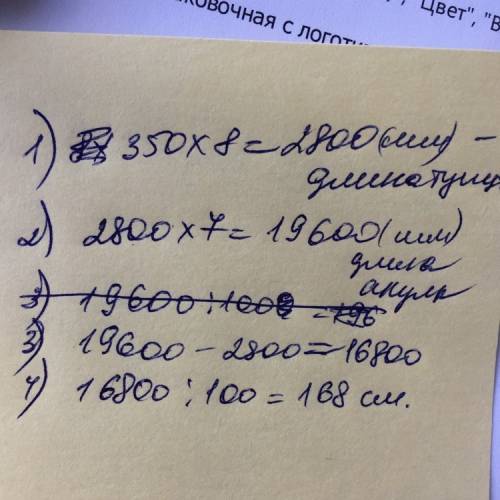 ", Цвет", "В
ковочная с логоти
1) 350 x 8 = 2800 (мм) –
длина тунц
2) 2800 x 7 = 19600 (мм)
длина
акулы
3) 19600 : 100 = 196
3) 19600 – 2800 = 16800
4) 16800 : 100 = 168 см.